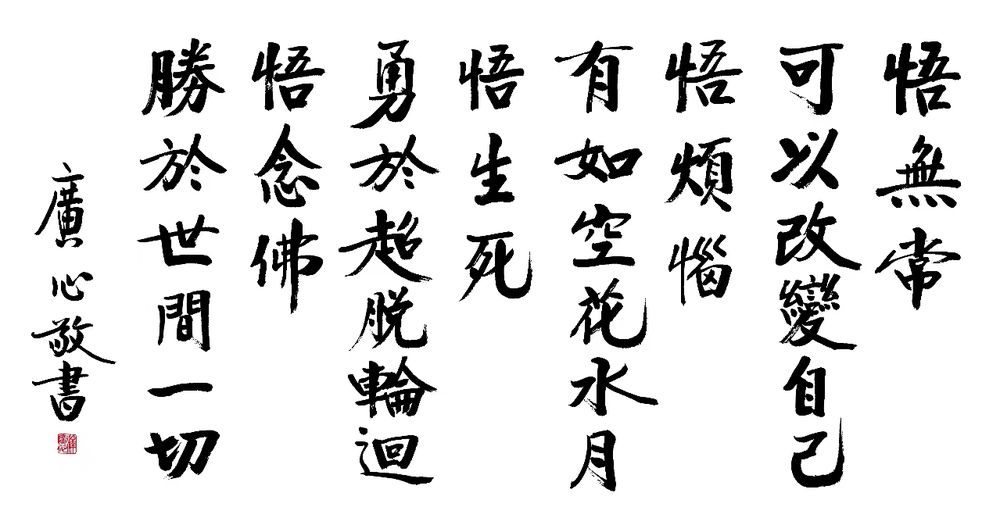 悟無常
可以改變自己
悟煩惱
有如空花水月
悟生死
勇於超脫輪迴
悟念佛
勝於世間一切
廣心敬書